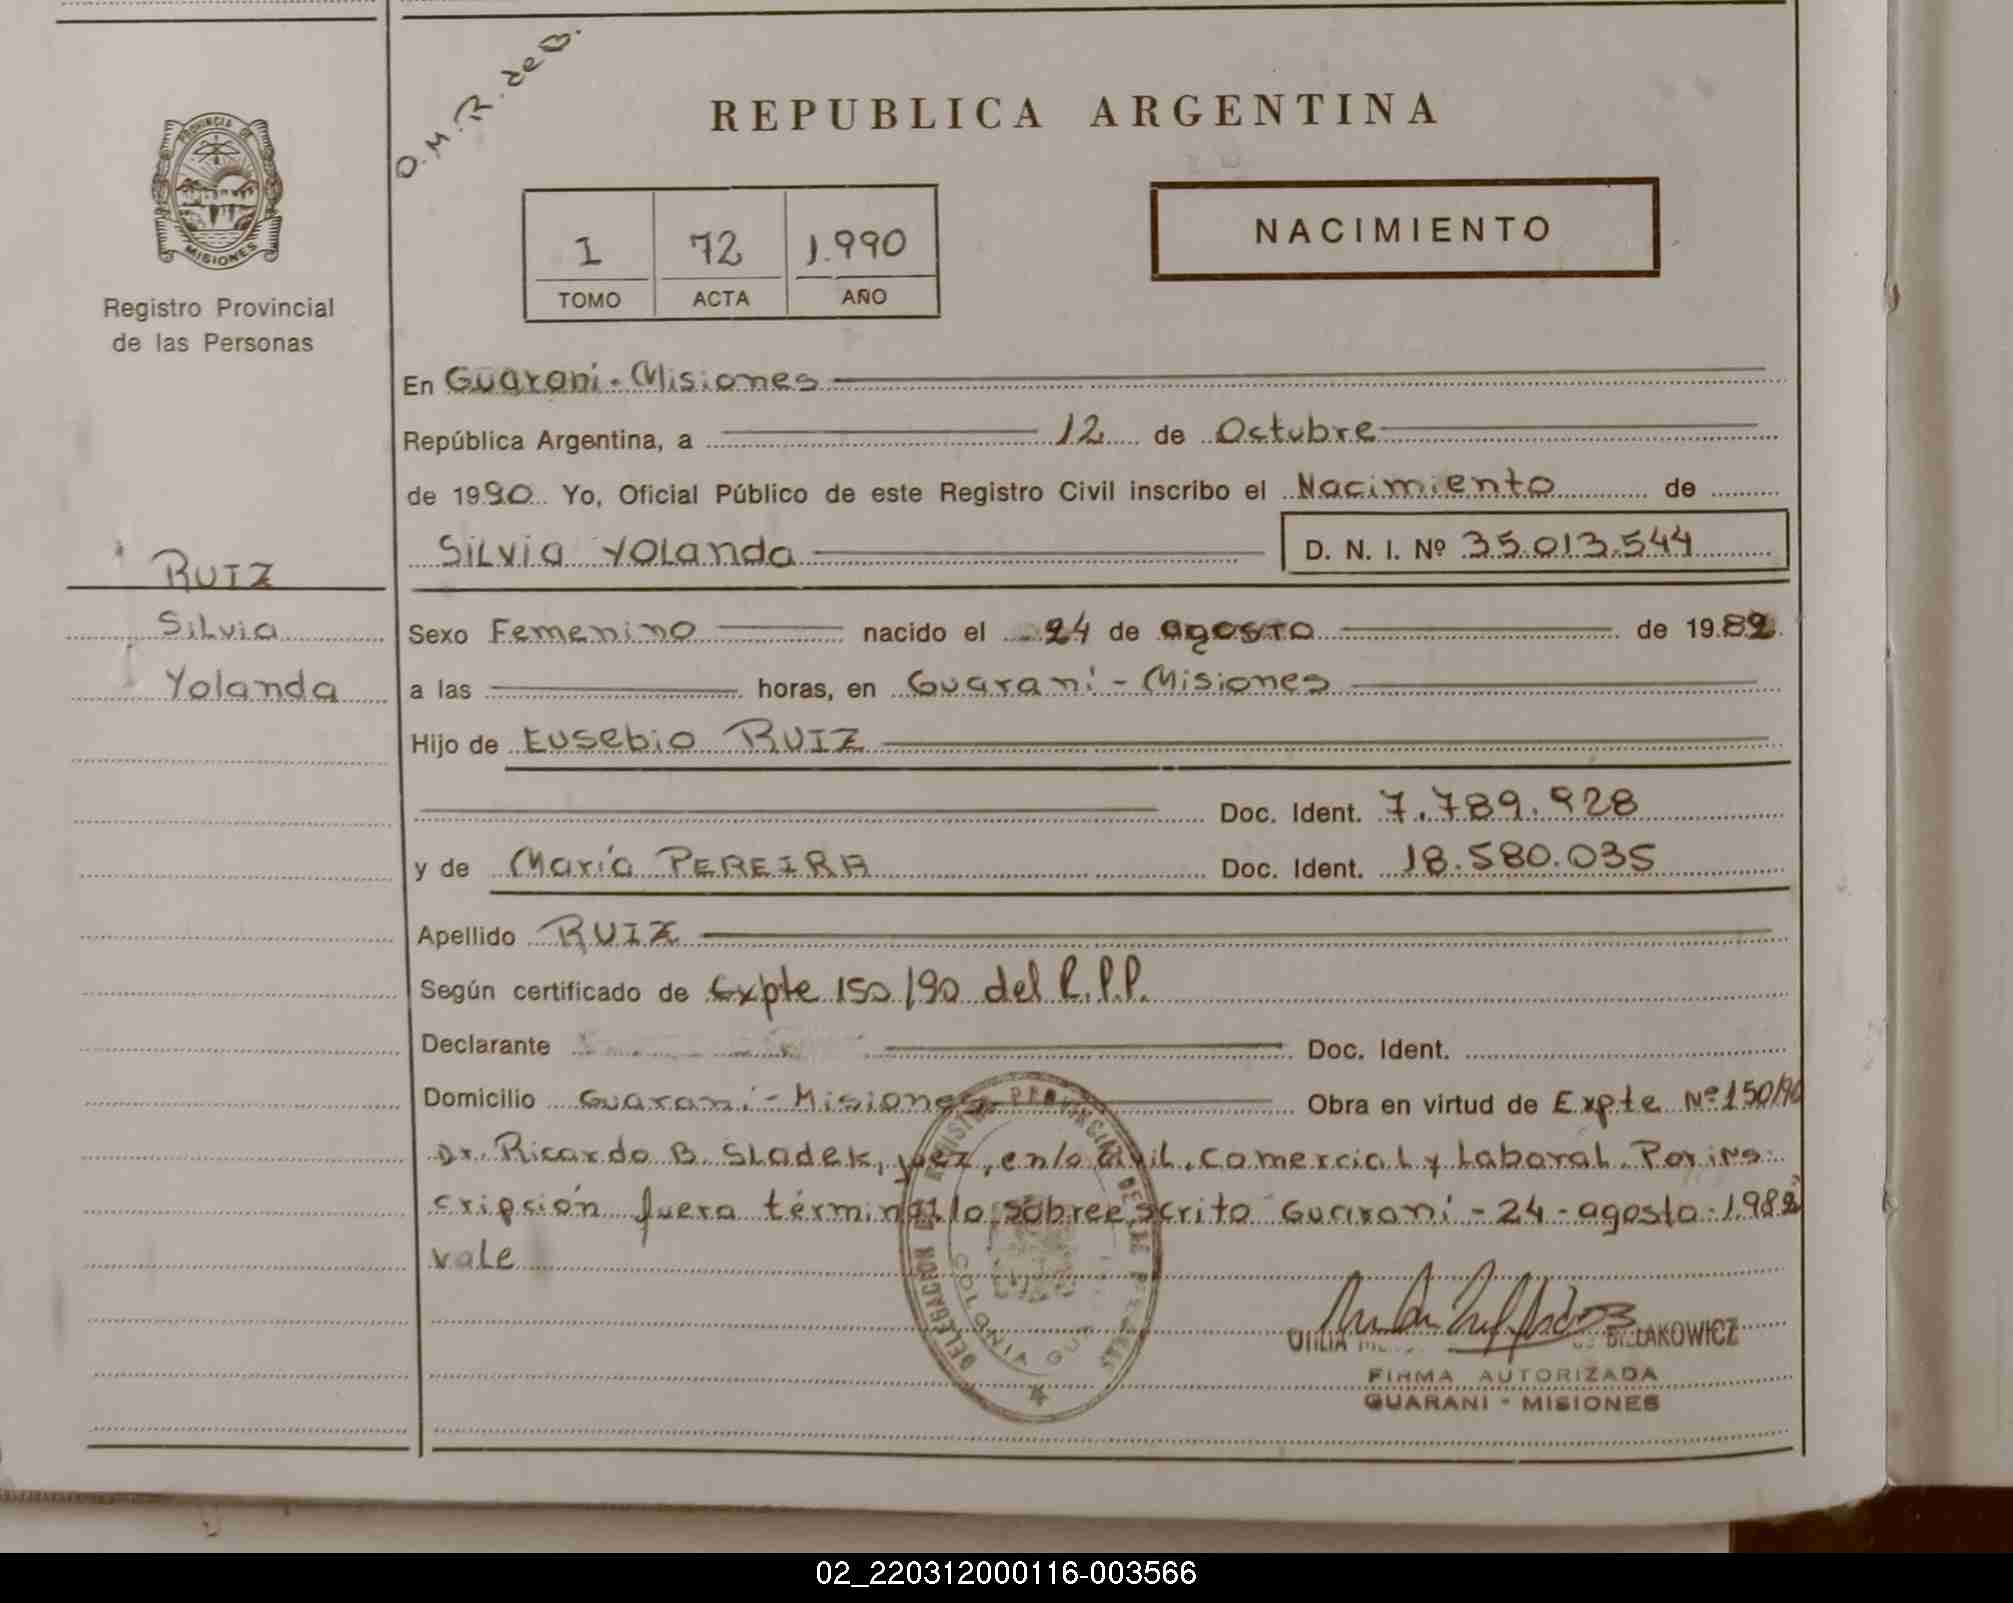 O.M.R. de B.
REPUBLICA ARGENTINA
PROVINCIA DE
MISIONES
Registro Provincial
de las Personas
I 72 1.990
TOMO ACTA AÑO
NACIMIENTO
En Guarani - Misiones
República Argentina, a 12 de Octubre
de 1990 Yo, Oficial Público de este Registro Civil inscribo el Nacimiento de
Silvia Yolanda D. N. I. Nº 35.013.544
RUIZ
Silvia
Yolanda
Sexo Femenino nacido el 24 de agosto de 1982
a las horas, en Guarani - Misiones
Hijo de Eusebio RUIZ
Doc. Ident. 7.789.928
y de María PEREIRA Doc. Ident. 18.580.035
Apellido RUIZ
Según certificado de Expte 150/90 del R.P.P.
Declarante Doc. Ident.
Domicilio Guarani - Misiones Obra en virtud de Expte Nº 150/90
Dr. Ricardo B. Sladek, juez, en lo civil, Comercial y Laboral. Por ins-
cripsión fuera término, lo sobreescrito Guarani - 24 - agosto - 1982
vale
DELEGACION REGISTRO PROVINCIAL DE LAS PERSONAS
COLONIA GU
BIELAKOWICZ
FIRMA AUTORIZADA
GUARANI - MISIONES
02_220312000116-003566